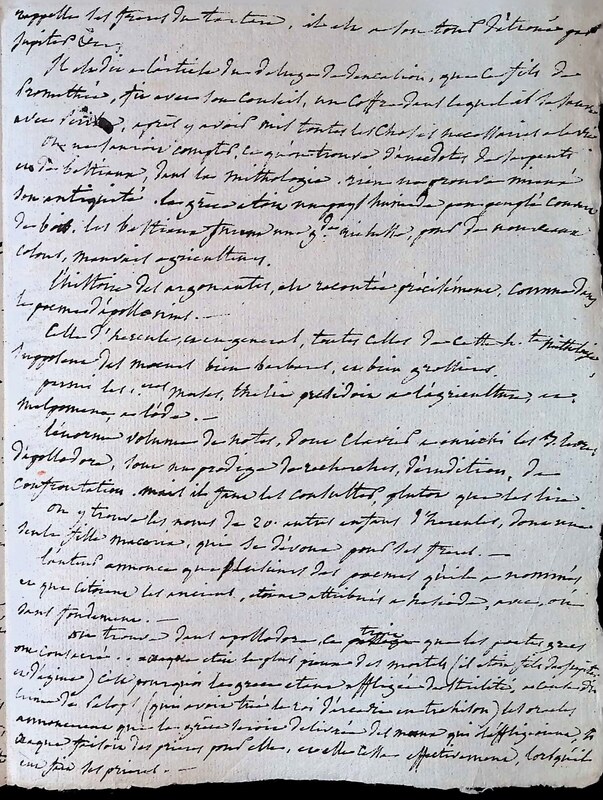 rappelle ses freres du tartare, il est a son tour détroné par
Jupiter &c.
Il est dit a l'article du deluge de deucalion, que ce fils de
Promethée, fit avec son conseil, un coffre dans lequel il se sauva
avec Pirrha, après y avoir mis toutes les choses necessaires a la vie
On ne sauroit compter, ce qu'on trouve d'anecdotes de serpents
et de bestiaux, dans la mithologie. rien ne prouve mieux
son antiquité. la grèce etoit un pays humide peu peuplé couvert
de bois. les bestiaux furent une gde richesse, pour de nouveaux
colons, mauvais agriculteurs.
l'histoire des argonautes, est racontée précisément, comme dans
le poeme d'apollonius. —
Celle d'hercule, et en general, toutes celles de cette mithologie,
supposent des moeurs bien barbares, et bien grossiers.
parmi les muses, thalie présidoit a l'agriculture, et
melpomene, a l'ode. —
l'énorme volume de notes, dont Clavier a enrichi les 3 livres
d'apollodore, sont un prodige de recherches, d'érudition, de
confrontation. mais il faut les consulter, plutot que les lire
on y trouve les noms de 20 autres enfans d'hercules, dont une
seule fille macaria, qui se dévoua pour ses freres. —
l'auteur annonce que plusieurs des poemes qu'il a nommés
et que citoient les anciens, etoient attribués a hesiode, avec, ou
sans fondement. —
on trouve dans apollodore, ce trait que les poetes grecs
ont consacré.. eaque etoit le plus pieux des mortels (il etoit fils de jupiter
et d'égine) C'est pourquoi la grece etant affligée de sterilité, a cause du
crime de Pelops (qui avoit tué le roi d'arcadie en trahison) les oracles
annoncerent que la grece seroit delivrée des maux qui l'affligeoient, si
eaque faisoit des prieres pour elle, et elle cessa effectivement, lorsqu'il
eut fait ses prieres. —